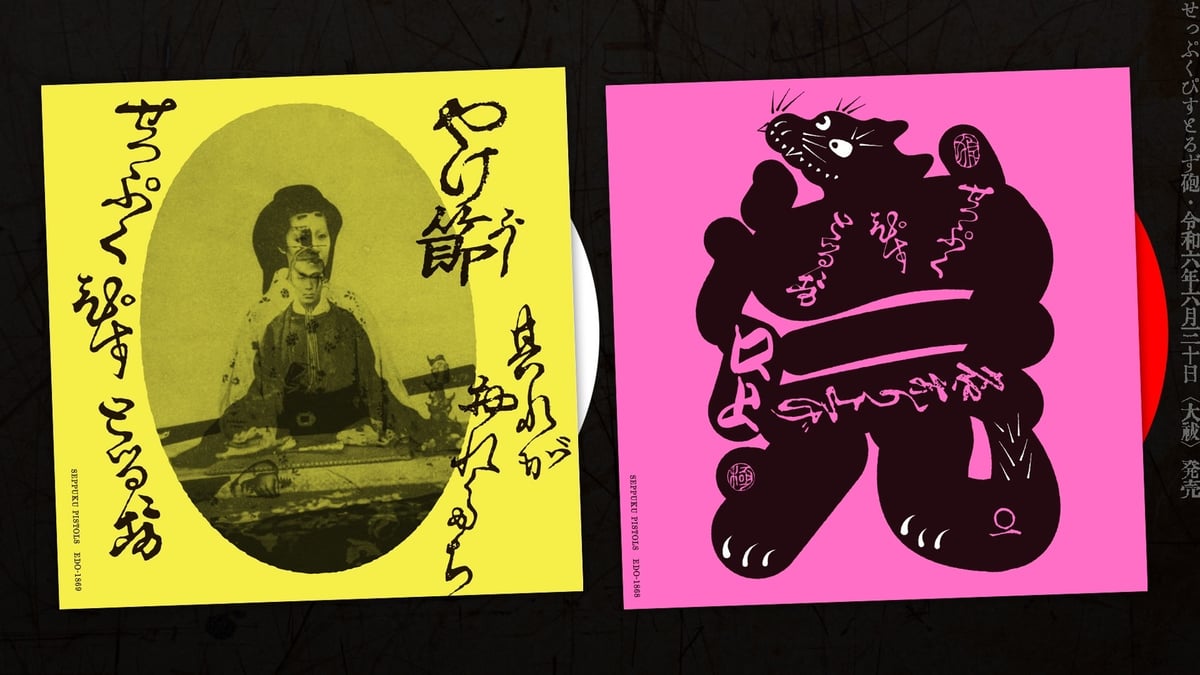 やけ節
其れが
せっぷく
ぴす
とるず
SEPPUKU PISTOLS EDO-1869
狼
せっぷく
ぴす
とるず
口上
極
SEPPUKU PISTOLS EDO-1868
せっぷくぴすとるず砲・令和六年六月三十日〈大祓〉発売